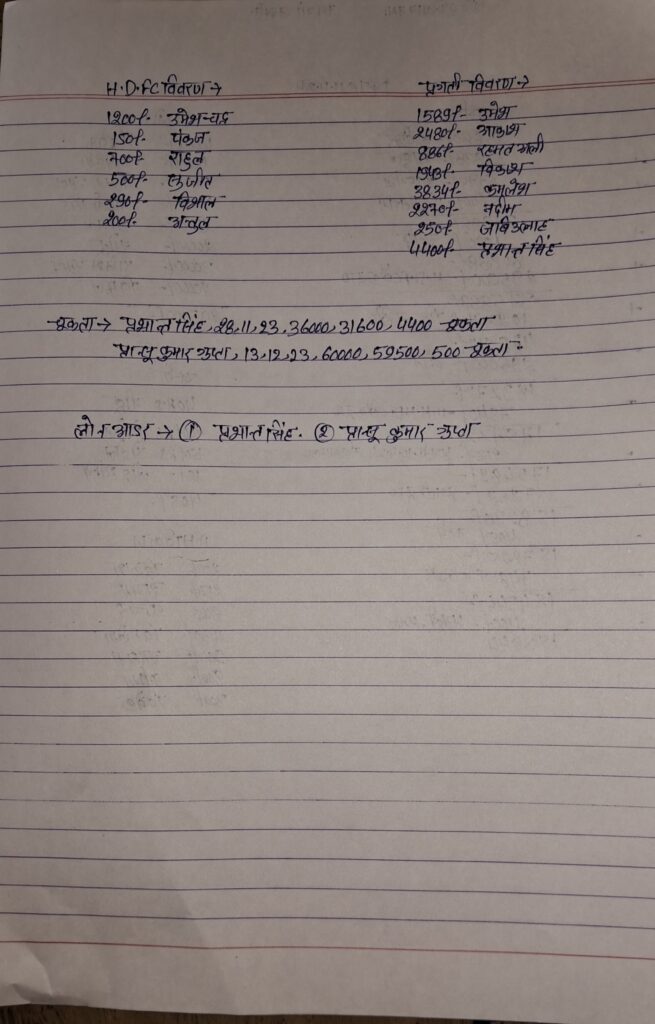 H.D.FC विवरण →
1200/- उमेश-चंद्र
150/- पंकज
700/- राहुल
500/- सुजीत
290/- विशाल
200/- अतुल
प्रगती विवरण →
1589/- उमेश
2480/- आकाश
886/- रहमत अली
1343/- विकाश
3834/- कमलेश
2270/- नदीम
250/- जबिउल्लाह
4400/- प्रशान्त सिंह
चुकता → प्रशान्त सिंह, 28,11,23, 36000, 31600, 4400 चुकता
प्रान्शू कुमार गुप्ता, 13,12,23, 60000, 59500, 500 चुकता
लोन आडर → ① प्रशान्त सिंह. ② प्रान्शू कुमार गुप्ता